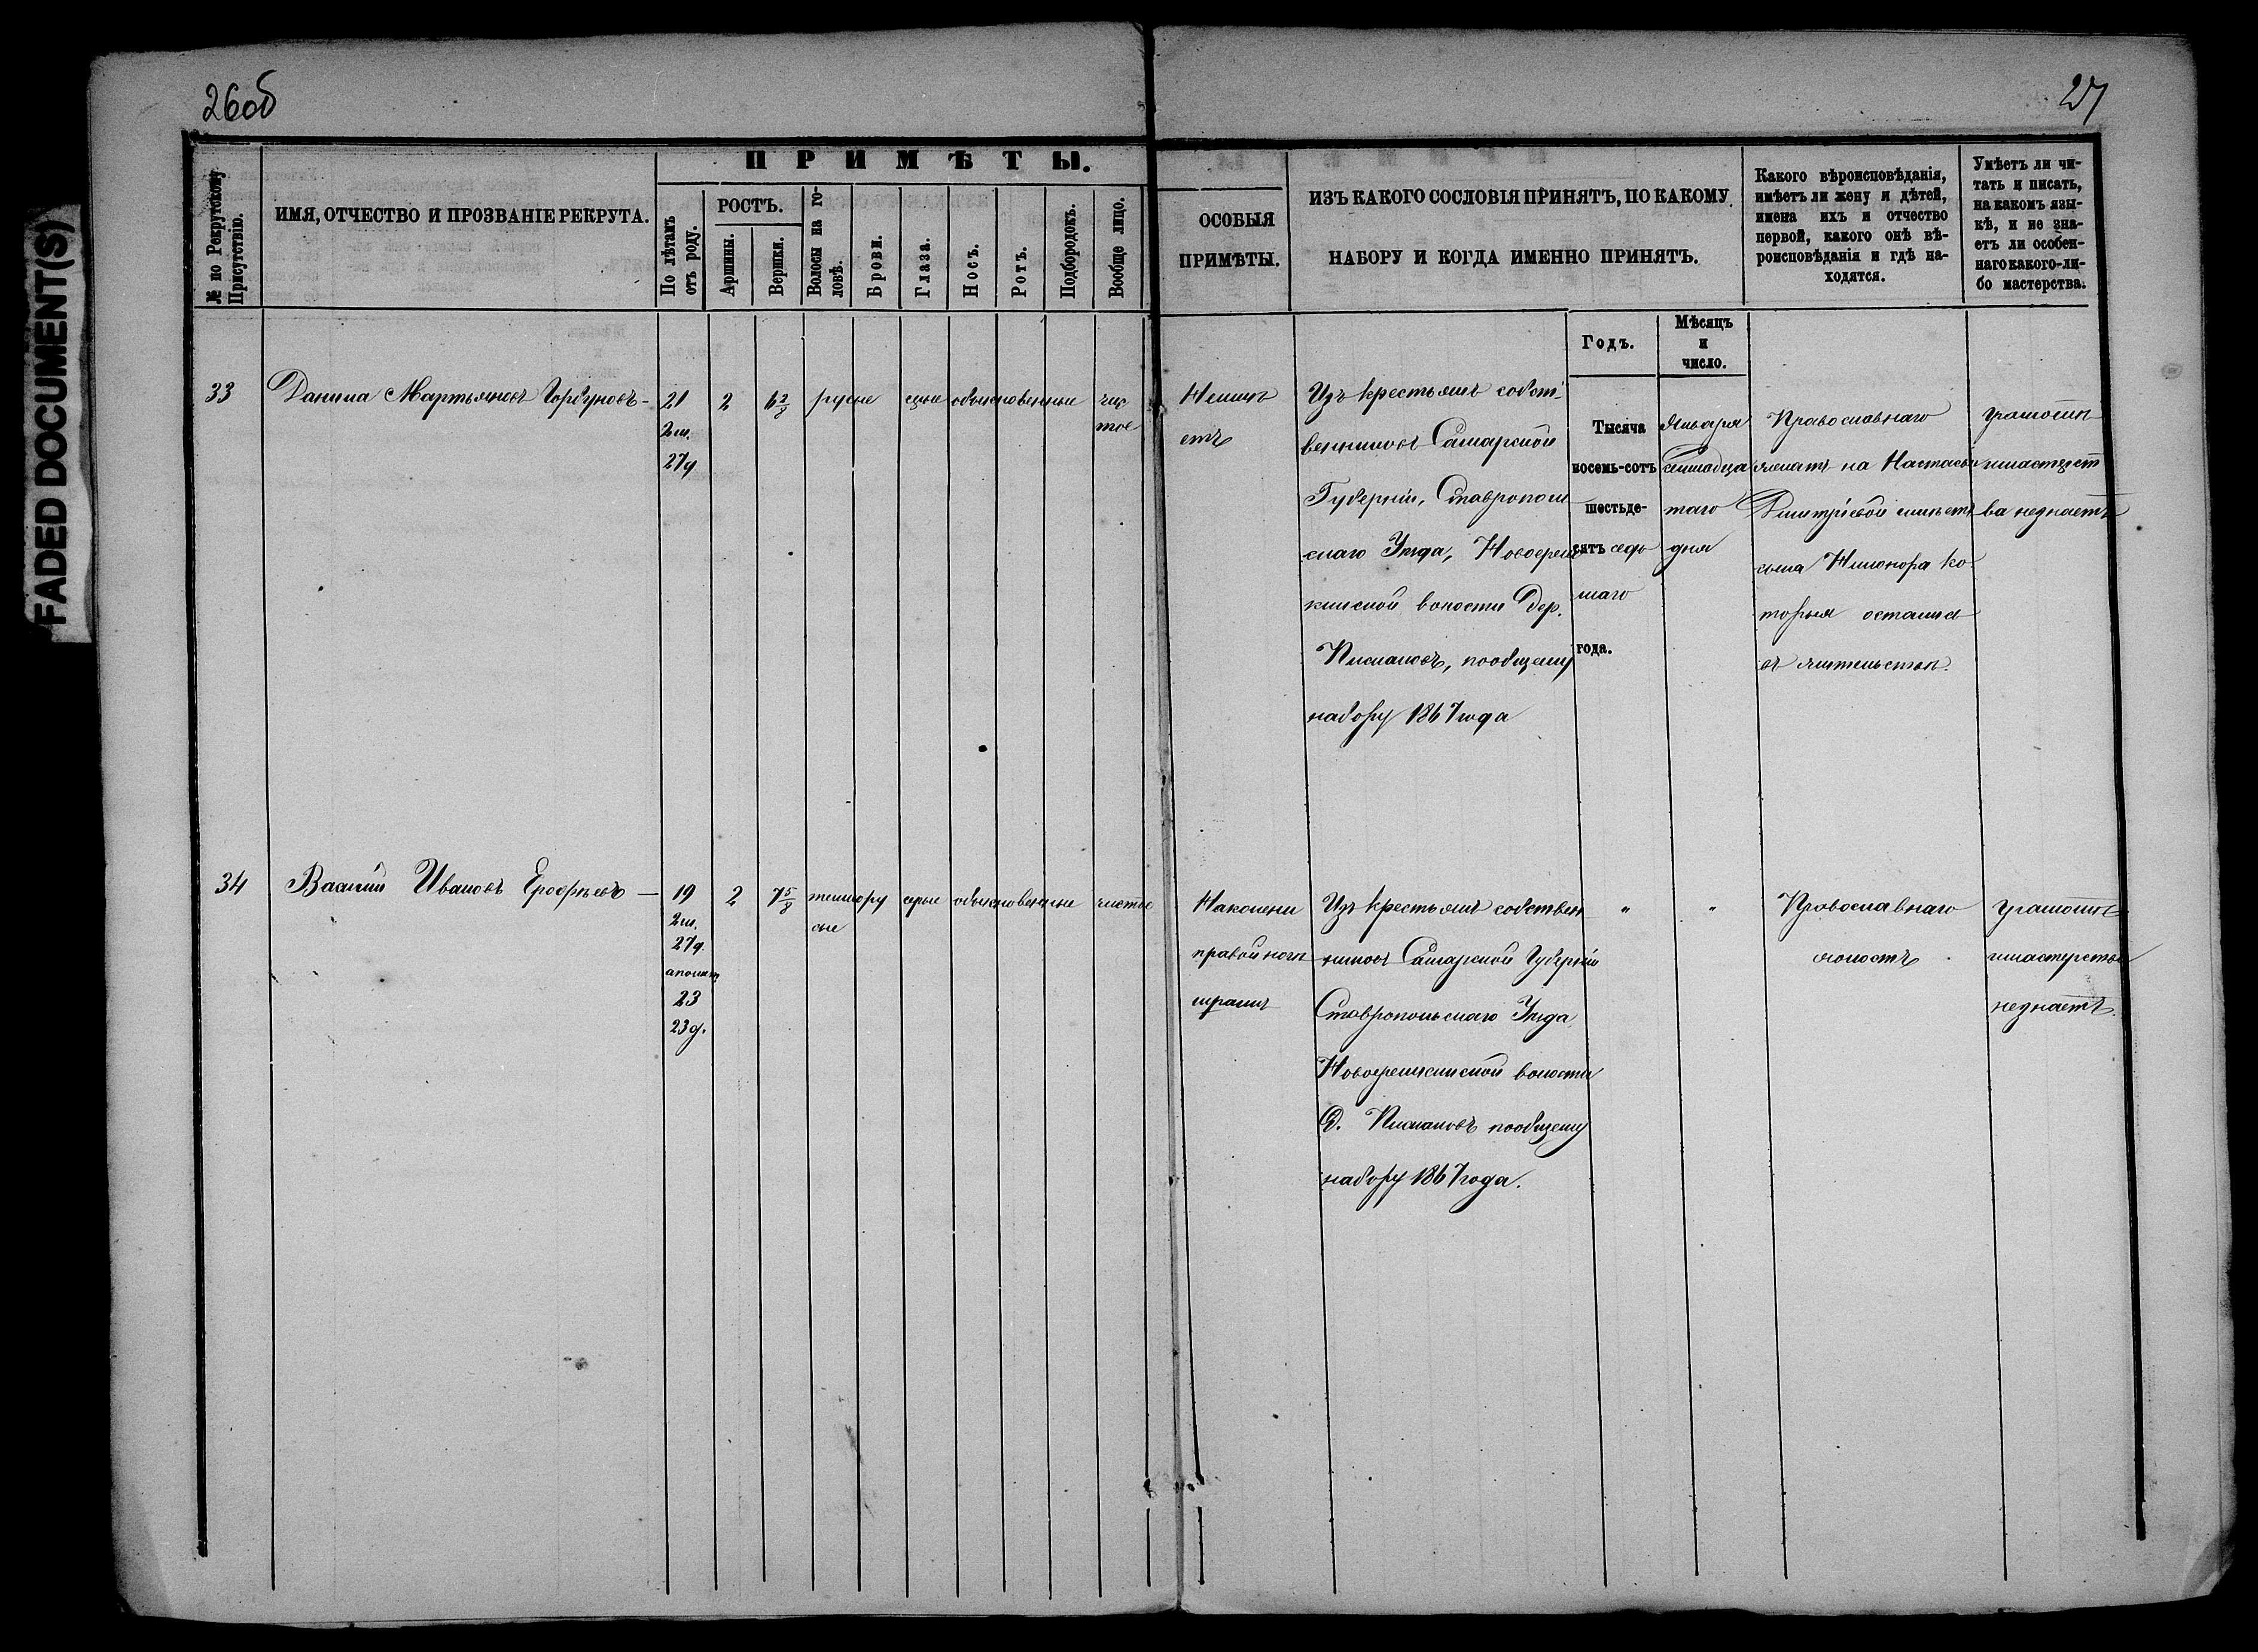 FADED DOCUMENT(S)
26об
27
№ по Рекрутскому Присутствію.
ИМЯ, ОТЧЕСТВО И ПРОЗВАНІЕ РЕКРУТА.
ПРИМѢТЫ.
По лѣтамъ отъ роду.
РОСТЪ.
Аршины.
Вершки.
Волосы на головѣ.
Брови.
Глаза.
Носъ.
Ротъ.
Подбородокъ.
Вообще лицо.
ОСОБЫЯ
ПРИМѢТЫ.
ИЗЪ КАКОГО СОСЛОВІЯ ПРИНЯТЪ, ПО КАКОМУ
НАБОРУ И КОГДА ИМЕННО ПРИНЯТЪ.
Годъ.
Мѣсяцъ
и
число.
Какого вѣроисповѣданія,
имѣетъ ли жену и дѣтей,
имена ихъ и отчество
первой, какого онѣ вѣ-
роисповѣданія и гдѣ на-
ходятся.
Умѣетъ ли чи-
тать и писать,
на какомъ язы-
кѣ, и не зна-
етъ ли особен-
наго какого-ли-
бо мастерства.
33
Данила Мартьяновъ Горбуновъ -
21
2м.
27д
2
6 2/8
русые
сѣрые
обыкновенные
чис
тое
Неимѣ
етъ
Изъ крестьянъ собст-
венниковъ Самарской
Губерніи, Ставрополь
скаго Уѣзда, Новоерем
кинской волости Дер.
пообщему
набору 1867 года
Тысяча
восемь-сотъ
шестьде-
сятъ седь
маго
года.
Января
семнадца
таго
дня
Православнаго
женатъ на Настасьи
Дмитріевой имѣетъ
сына Никонора ко-
торыя остались
въ жительствѣ.
грамотѣ
имастерст
ва незнаетъ
34
Василій Ивановъ Ерофѣевъ —
19
2м.
27д.
23
23д.
2
7 5/8
темнору
сые
сѣрые
обыкновенные
чистое
Наколени
правой ноги
шрамъ
Изъ крестьянъ собствен
никовъ Самарской Губерніи
Ставропольскаго Уѣзда
Новоеремкинской волости
Д. пообщему
набору 1867 года.
"
"
Православнаго
холостъ
грамотѣ
имастерства
незнаетъ.